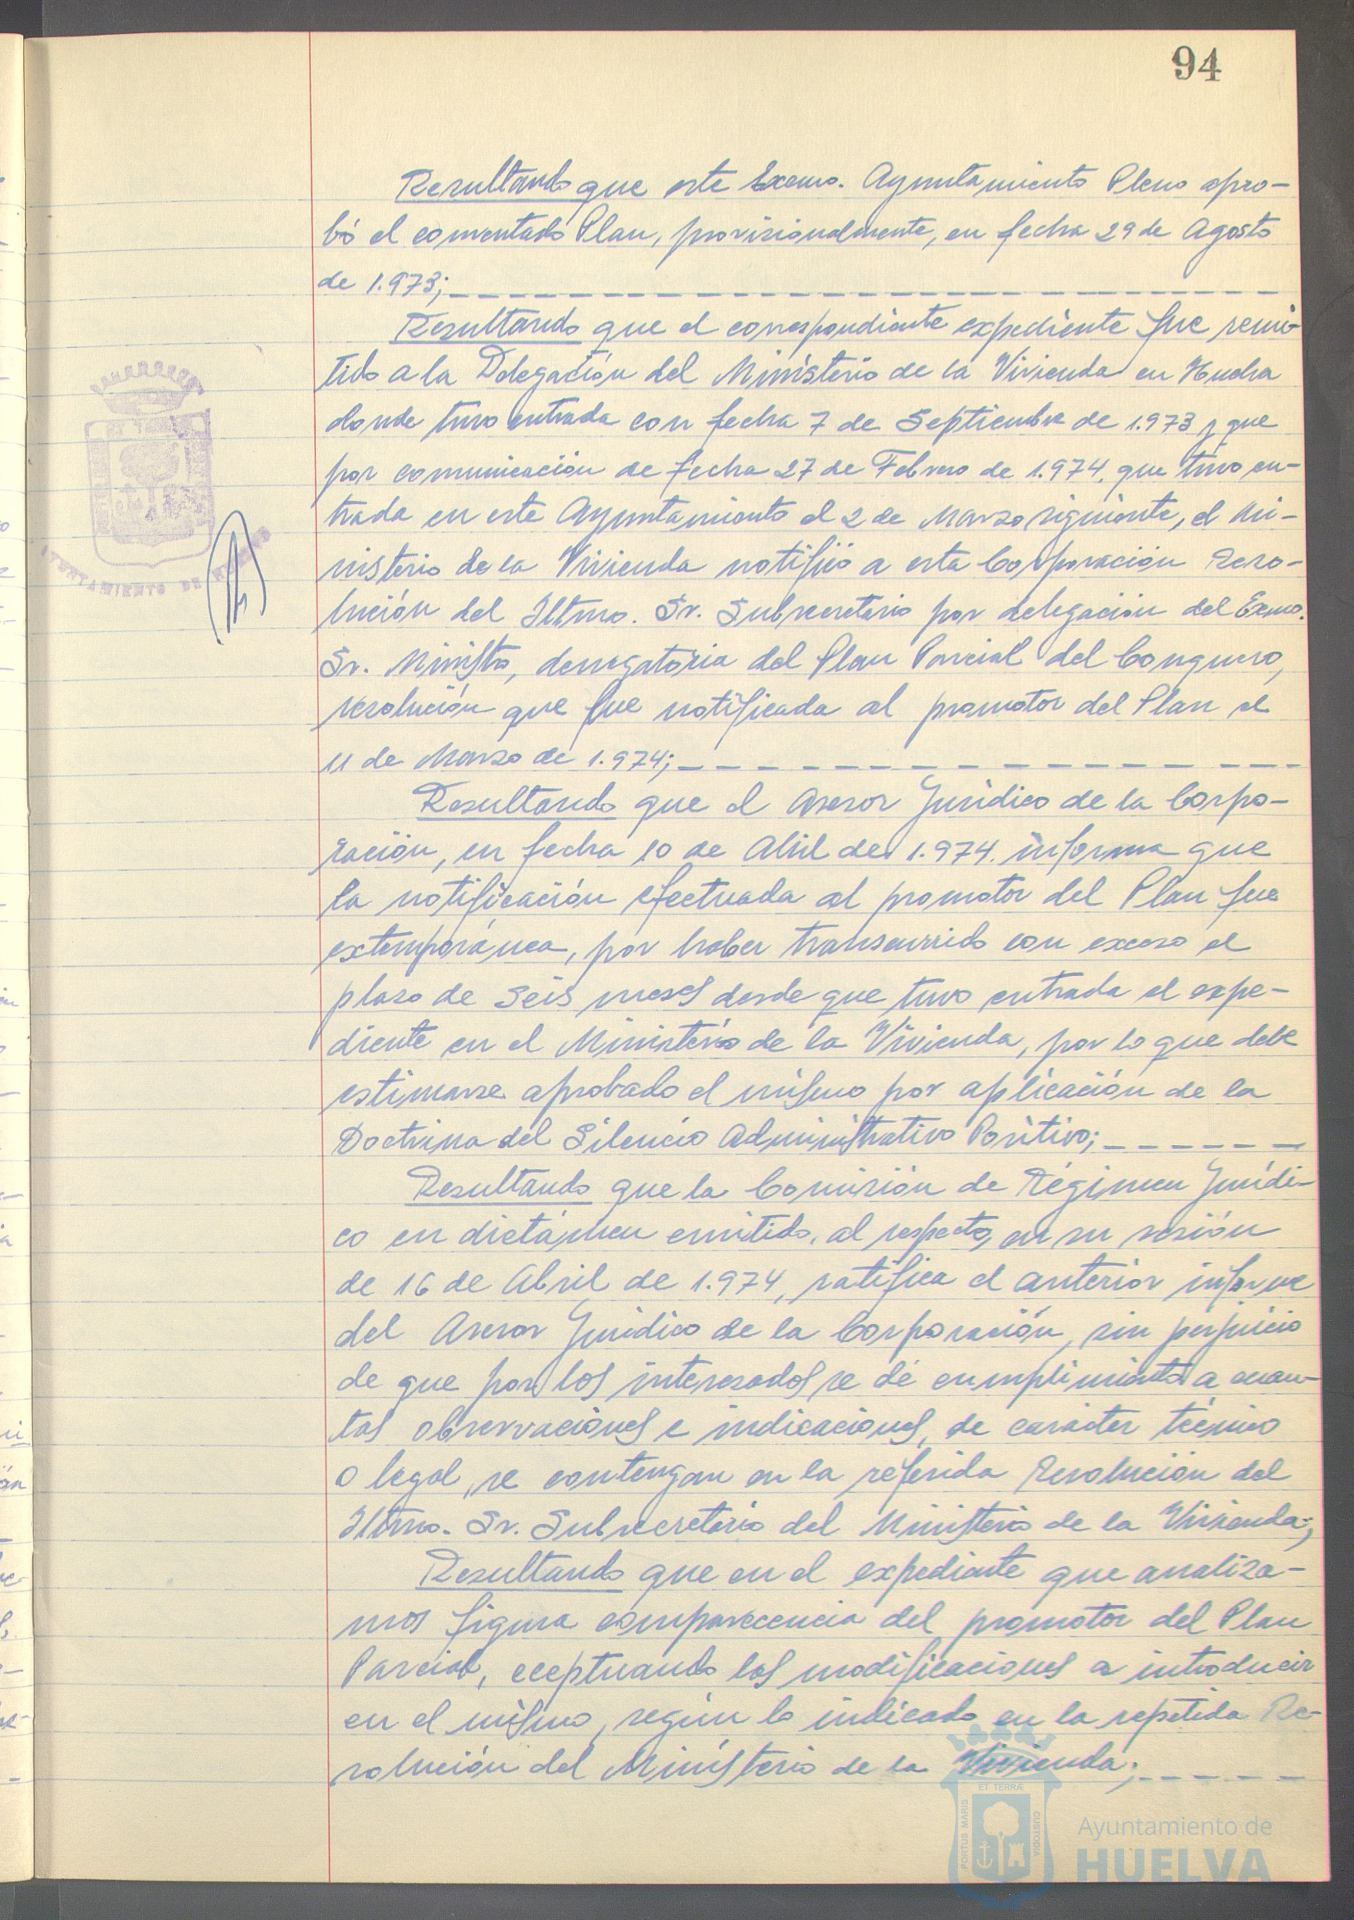 94
Resultando que este Excmo. Ayuntamiento Pleno apro-
bó el comentado Plan, provisionalmente, en fecha 29 de Agosto
de 1.973;
Resultando que el correspondiente expediente fue remi-
tido a la Delegación del Ministerio de la Vivienda en Huelva
donde tuvo entrada con fecha 7 de Septiembre de 1.973 y que
por comunicación de fecha 27 de Febrero de 1.974, que tuvo en-
trada en este Ayuntamiento el 2 de Marzo siguiente, el Mi-
nisterio de la Vivienda notificó a esta Corporación Reso-
lución del Iltmo. Sr. Subsecretario por delegación del Exmo.
Sr. Ministro, denegatoria del Plan Parcial del Conquero,
resolución que fue notificada al promotor del Plan el
11 de Marzo de 1.974;
Resultando que el Asesor Jurídico de la Corpo-
ración, en fecha 10 de Abril de 1.974. informa que
la notificación efectuada al promotor del Plan fue
extemporánea, por haber transcurrido con exceso el
plazo de seis meses desde que tuvo entrada el expe-
diente en el Ministerio de la Vivienda, por lo que debe
estimarse aprobado el mismo por aplicación de la
Doctrina del Silencio Administrativo Positivo;
Resultando que la Comisión de Régimen Jurídi-
co en dictámen emitido, al respecto, en su sesión
de 16 de Abril de 1.974, ratifica el anterior informe
del Asesor Jurídico de la Corporación, sin perjuicio
de que por los interesados se dé cumplimiento a cuan-
tas observaciones e indicaciones, de carácter técnico
o legal, se contengan en la referida Resolución del
Iltmo. Sr. Subsecretario del Ministerio de la Vivienda;
Resultando que en el expediente que analiza-
mos figura comparecencia del promotor del Plan
Parcial, eceptuando las modificaciones a introducir
en el mismo, según lo indicado en la repetida Re-
solución del Ministerio de la Vivienda;
AYUNTAMIENTO DE HUELVA
PORTUS MARIS
ET TERRÆ
CUSTODIA
Ayuntamiento de
HUELVA